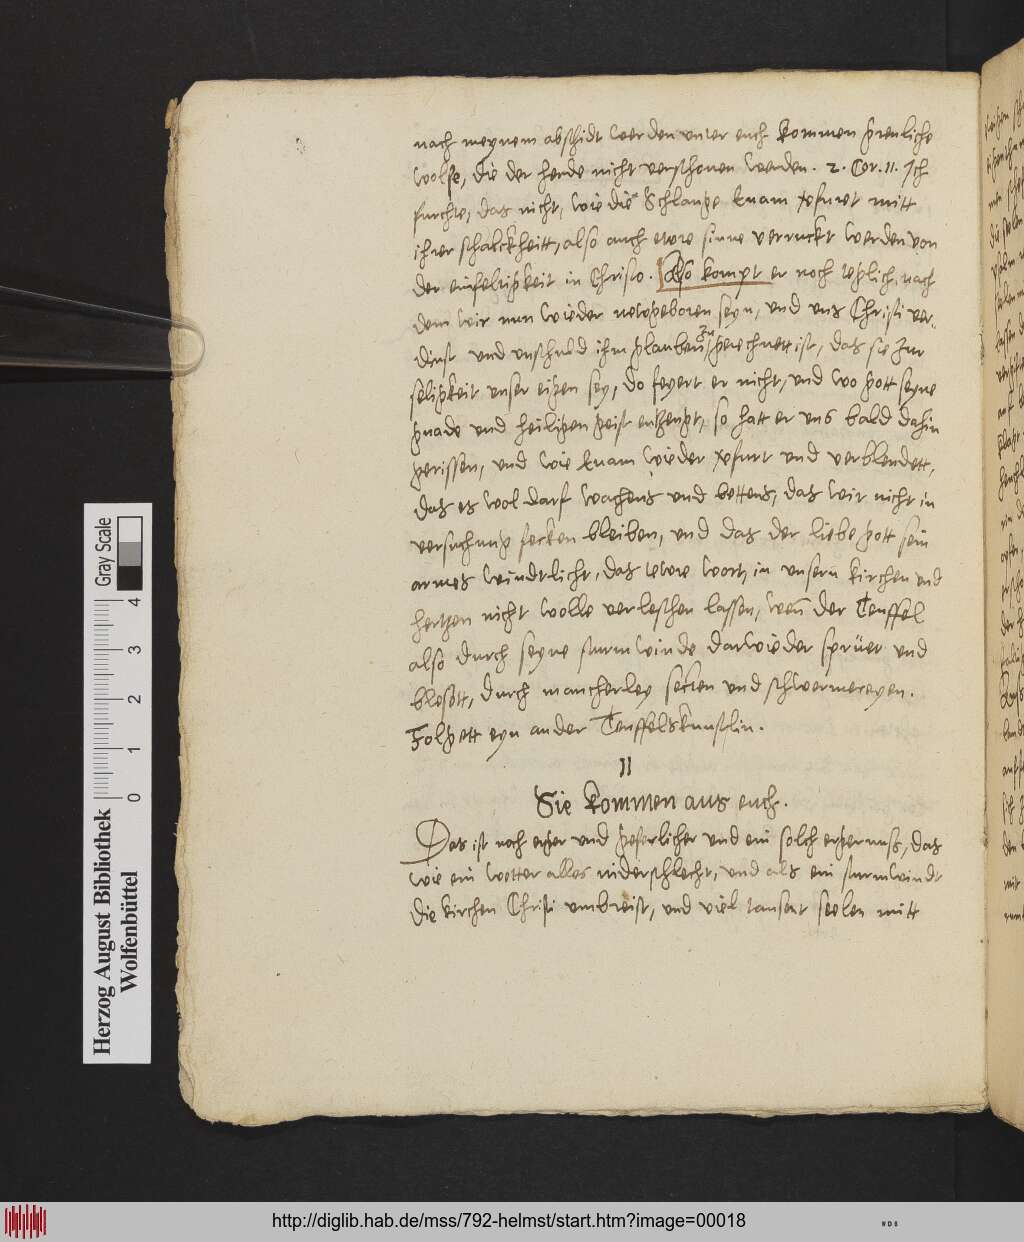 nach meynem abschidt werden unter euch kommen greuliche
wolfe, die der herde nicht verschonen werden. 2. Cor. 11. Ich
furchte, das nicht, wie die Schlange Euam
ihrer schalckheitt, also auch ewre sinne verruckt werden von
der einfeltigkeit in Christo. Also kompt er noch teglich, nach
dem wir nun wieder newgeboren seyn, und uns Christi ver-
dinst und unschuld ihm glauben zu gerechnett ist, das sie zur
seligkeit unser eigen sey, do feyert er nicht, und wo gott seyne
gnade und heiligen geist entzeugt, so hatt er uns bald dahin
gerissen, und wie Euam wieder und verblendett,
das es wol darf wachens und bettens, das wir nicht in
versuchung stecken bleiben, und das der liebe gott sein
armes windtlicht, das tewre wort, in unsern kirchen und
hertzen nicht wolle verleschen lassen, wen der Teuffel
also durch seyne sturmwinde darwieder sprüet und
blosett, durch mancherley secten und schwermereyen.
Folgett eyn ander Teuffelskunstlin.
II
Sie kommen aus euch.
Das ist noch erger und geferlicher und ein solch ergernuß, das
wie ein wetter alles niderschlecht, und als ein sturmwindt
die kirchen Christi umbreist, und viel tausent seelen mitt
Herzog August Bibliothek
Wolfenbüttel
Gray Scale
0 1 2 3 4
http://diglib.hab.de/mss/792-helmst/start.htm?image=00018